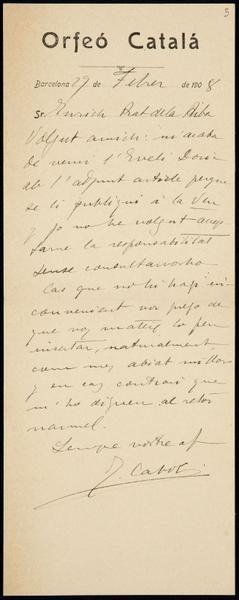 5
Orfeó Catalá
Barcelona 29 de Febrer de 1908
Sr. Enrich Prat de la Riba
Volgut amich: m'acaba
de venir l'Eveli Doria
ab l'adjunt article perque
se li publiqui a la Veu
y jo no he volgut acep
tarne la responsabilitat
sense consultarvosho
Cas que no hi hagi in
convenient vos prego de
que vos mateix lo feu
insertar, naturalment,
com mes aviat millor
y en cas contrari que
m' ho digueu al retor
narmel.
Sempre vostre af
J. Cabot